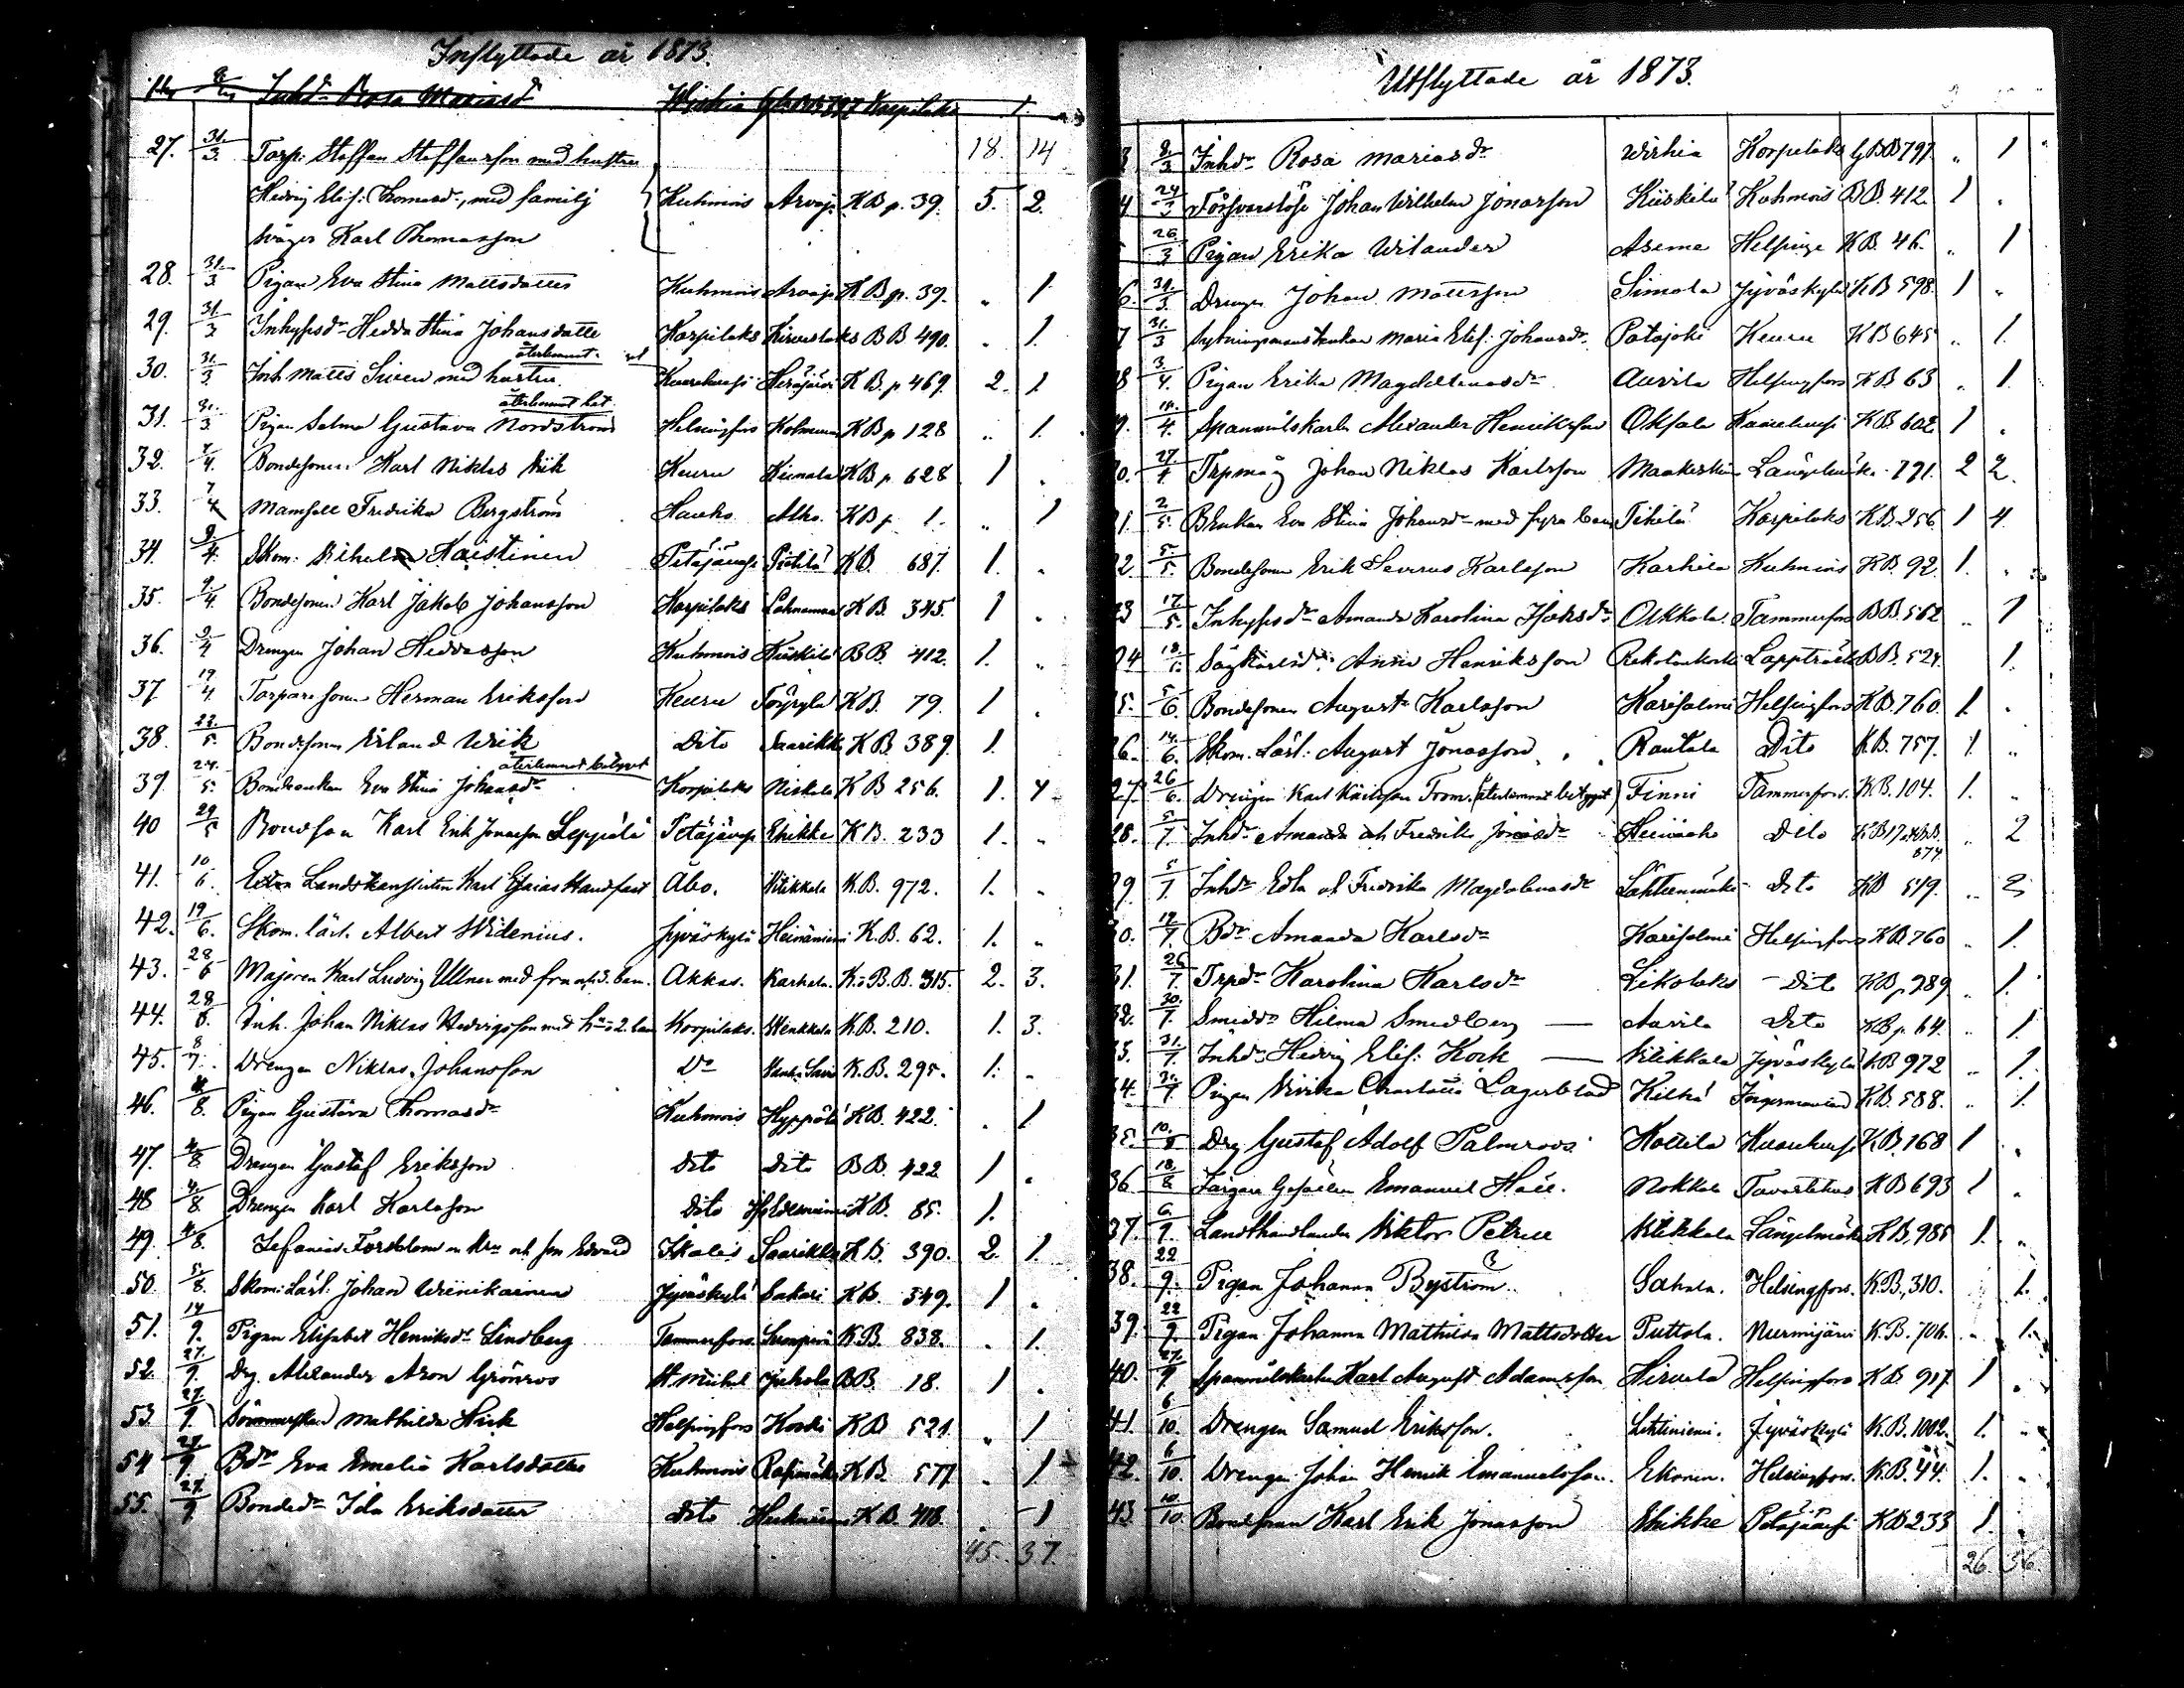 Inflyttade år 1873.
Inhdr Rosa Mariasdr Wirkia GBB 797 Korpilaks 1.
18. 14
27. 31/3. Torp: Staffan Staffansson med hustru
Hedvig Elis: Thomasdr, med familj Kuhmois Arvaja KB p. 39. 5. 2.
svåger Karl Thomasson
28. 31/3 Pigan Eva Stina Mattsdotter Kuhmois Arvaja KB p. 39. „ 1.
29. 31/3 Inhypsdr Hedda Stina Johansdotter Korpilaks BB 490. „ 1.
återlemnat
30. 31/3. Inh Matts Siren med hustru. KB p 469. 2. 1
återlemnat bet.
31. 31/3. Pigan Selma Gustava Nordström Helsingfors KB p 128 „ 1.
32. 7/4. Bondesonen Karl Niklas Keuru KB p. 628 1 „
33. 7/4 Mamsell Fredrika Bergström Hauho Alho. KB p. 1. „ 1
34. 9/4. Skom: Vilhelm Kaistinen Petäjävesi KB. 687. 1. „
35. 9/4. Bondesonen Karl Jakob Johansson Korpilaks KB. 345. 1 „
36. 9/4 Drengen Johan Heddasson Kuhmois Kiiskilä BB. 412. 1. „
37 19/4. Torparesonen Herman Eriksson Keuru KB. 79. 1 „
38. 22/5. Bondesonen Erland Wiik Dito Saarikko KB. 389. 1.
återlemnat betyget
39. 24/5. Bondeenkan Eva Stina Johansdr Korpilaks Niskala KB 256. 1. 4
40 29/5 Bondson Karl Erik Jonasson Leppälä Petäjävesi KB. 233 1. „
41. 10/6. Landskanslisten Karl Esaias Handfast Åbo. Vitikkala KB. 972. 1. „
42. 19/6. Skom. lärl. Albert Widenius. Jyväskylä Heinäniemi K.B. 62. 1. „
43. 28/6 Majoren Karl Ludvig Ullner med fru och 3. barn. Akkas. Karhola. K. B. B. 315. 2. 3.
44. 28/6. Inh. Johan Niklas Hedvigsson med hu o 2. barn Korpilaks. KB. 210. 1. 3.
45. 8/7. Drengen Niklas Johansson Do K.B. 295. 1. „
46. 4/8. Pigan Gustava Thomasdr Kuhmois Hyppölä KB. 422. „ 1
47. 4/8. Drengen Gustaf Eriksson Dito Dito BB. 422 1 „
48 4/8. Drengen Karl Karlsson Dito KB. 85. 1.
49. 4/8. Forsblom m hu och son Edvard Ikalis Saarikko KB. 390. 2. 1.
50. 5/8. Skom: Lärl: Johan Wiinikainen Jyväskylä Sakari KB. 349. 1 „
51. 14/9. Pigan Elisabet Henriksdr Lindberg Tammerfors K.B. 838. „ 1.
52. 27/9. Drg. Alexander Aron Grönroos St Michel Juhola BB. 18. 1 „
53. 27/9. Mathilda Helsingfors KB 521. „ 1
54 27/9 Bdr Eva Emelia Karlsdotter Kuhmois KB 577 „ 1
55. 27/9 Bondedr Ida Eriksdotter Dito KB. 418. „ 1
45. 37.
Utflyttade år 1873.
8/3 Inhdr Rosa Mariasdr Wirkia Korpilaks GBB 797. „ 1
24/3 Försvarslöse Johan Wilhelm Jonasson Kiiskilä Kuhmois BB. 412. 1 „
26/3 Pigan Erika Wilander Asema Helsinge KB. 46. „ 1
6. 31/3. Drengen Johan Mattsson Simola Jyväskylä KB 598. 1 „
7 31/3 Sytningsmansenkan Maria Elis: Johansdr Patajoki Keuru KB 645 „ 1.
8 3/4. Pigan Erika Magdalenasdr Auvila Helsingfors KB 63 „ 1.
9. 14/4. Spanmålskarln Alexander Henriksson Oksala KB 602 1 „
0. 27/4 Trpmåg Johan Niklas Karlsson Längelmäki 791. 2 2.
1. 2/5. Eva Stina Johansdr med fyra barn Korpilaks KB. 256. 1 4.
2. 5/5. Bondesonen Erik Severus Karlsson Karhila Kuhmois KB. 92. 1. „
23 17/5. Inhypsdr Amanda Karolina Isaksdr Ukkola. Tammerfors BB. 562 „ 1
24 18/ Anna Henriksson Lappträsk BB. 524. 1.
5. 5/6. Bondesonen August Karlsson Karisalmi Helsingfors KB. 760. 1. „
26. 14/6. Skom. Lärl: August Jonasson. Rautala Dito KB. 757. 1 „
27. 26/6. Drengen Karl Karlsson From. (återlemnat betyget) Finni Tammerfors. KB. 104. 1. „
28. 5/7. Inhdr Amanda och Fredrika Jonasdr Dito 874 „ 2
29. 5/7. Inhdr Edla och Fredrika Magdalenasdr Lähteenmäki Dito KB 549. „ 2
30. 19/7. Bdr Amanda Karlsdr Karisalmi Helsingfors KB 760 „ 1.
31. 26/7. Trpdr Karolina Karlsdr Dito KB p. 289 „ 1.
32. 30/7. Smeddr Hilma Smedberg — Auvila Dito KB p. 64. „ 1.
33. 31/7. Inhdr Hedvig Elis: Kock — Vitikkala Jyväskylä KB 972 „ 1.
34. 31/7. Pigan Ulrika Charlotta Lagerblad Ingermanland KB. 588. „ 1.
35. 10/8 Drg Gustaf Adolf Palmroos Kottila KB. 168 1 „
36 18/8. Färgare Gesällen Emanuel Hall. Nokkola Tavastehus KB 693 1 „
37. 6/9. Landthandlanden Viktor Petrell Vitikkala Längelmäki KB. 985 1. „
38. 22/9. Pigan Johanna Byström. Sahala. Helsingfors. K.B. 310. 1.
39. 22/9. Pigan Johanna Mathilda Mattsdotter Puttola. Nurmijärvi K.B. 706. „ 1.
40. 27/9 Spanmålskarln Karl August Adamsson Hirvelä Helsingfors KB. 917. 1 „
41. 6/10. Drengen Samuel Eriksson. Lehtiniemi. Jyväskylä K.B. 1002. 1. „
42. 6/10. Drengen Johan Henrik Emanuelsson. Ekonen. Helsingfors. K.B. 44. 1. „
43 10/10. Bondsonen Karl Erik Jonasson Petäjävesi KB 233 1. „
26. 36.